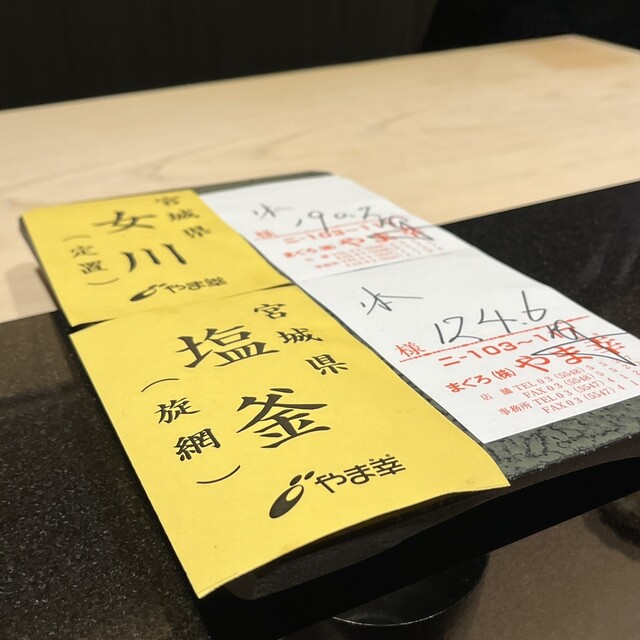 宮城県
女川
（定置）
やま幸
様
ニ-103~1
まぐろ㈱ やま幸
宮城県
塩釜
（旋網）
やま幸
124.6
様
ニ-103~1
まぐろ㈱ やま幸
店舗 TEL.03(5548)
FAX.03(5548)
事務所 TEL.03(5547)
FAX.03(5547)